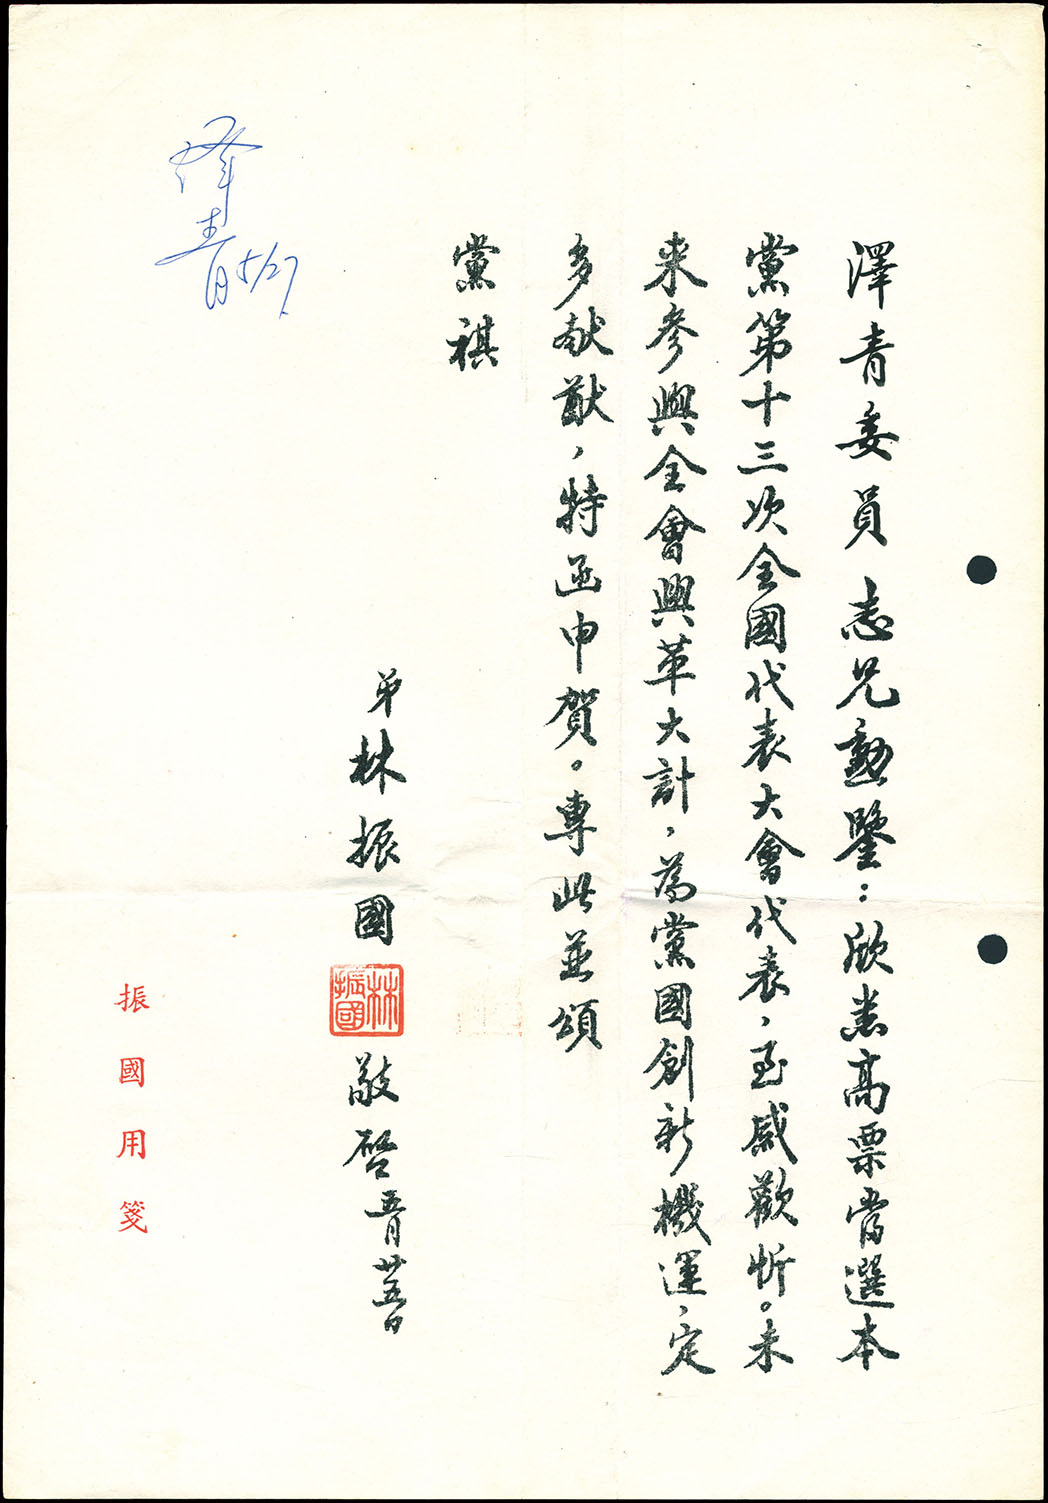 澤青委員志兄勳鑒：欣悉高票當選本
黨第十三次全國代表大會代表，至感歡忻。未
來參與全會興革大計，為黨國創新機運，定
多献猷，特函申賀。專此並頌
黨祺
弟林振國
林振國
敬啓五月廿五日
澤青 5/27
振國用箋